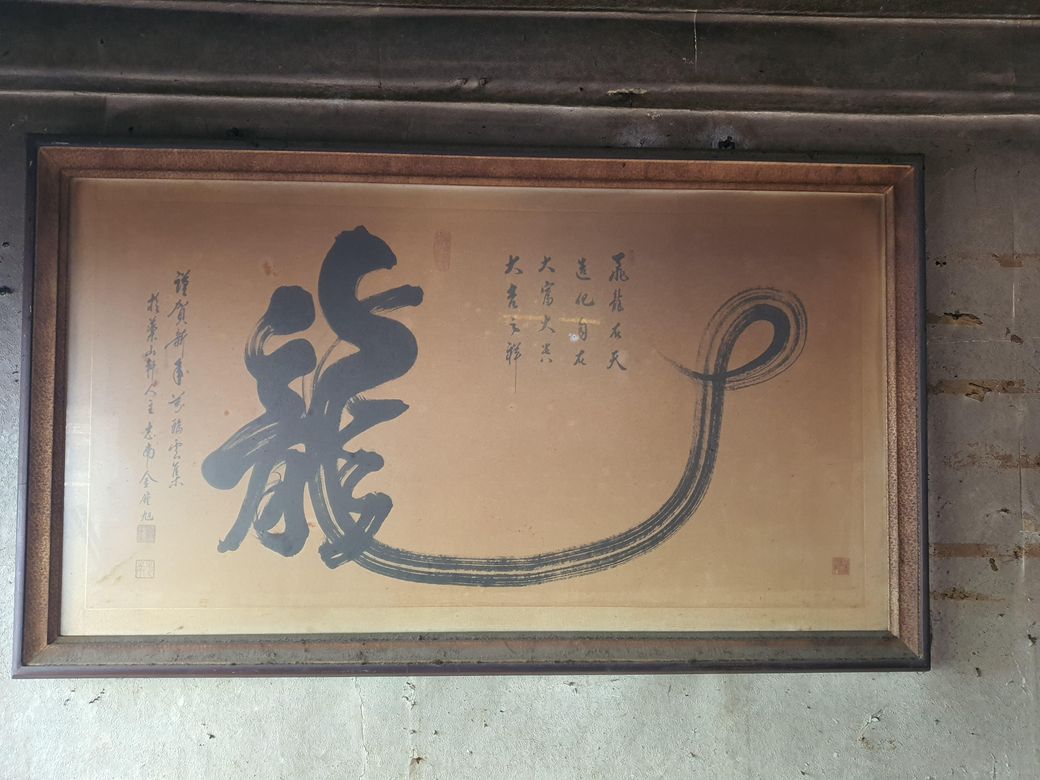 飛龍在天
造化自在
大富大貴
大吉大祥
龍
謹賀新年 萬福雲集
山軒人主 志南 金